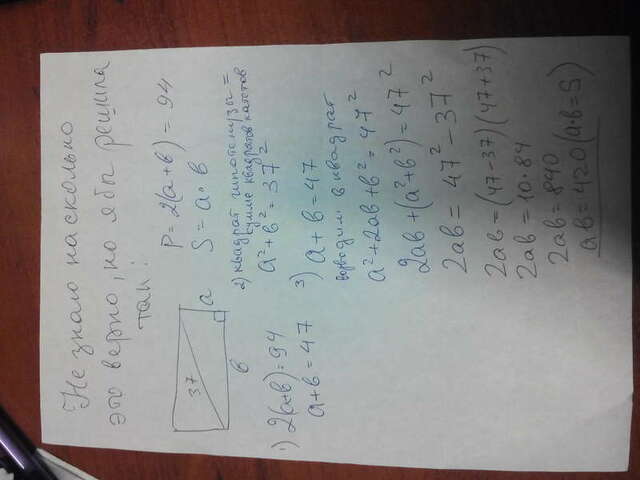 Не знаю насколько
это верно, но я бы решила
так:
P = 2(а+в) = 94
S = а · в
37
а
в
1) 2(а+в)=94
а+в=47
2) квадрат гипотенузы =
сумме квадратов катетов
а² + в² = 37²
3) а + в = 47
возводим в квадрат
а² + 2ав + в² = 47²
2ав + (а²+в²) = 47²
2ав = 47² - 37²
2ав = (47-37)(47+37)
2ав = 10 · 84
2ав = 840
ав = 420 (ав=S)